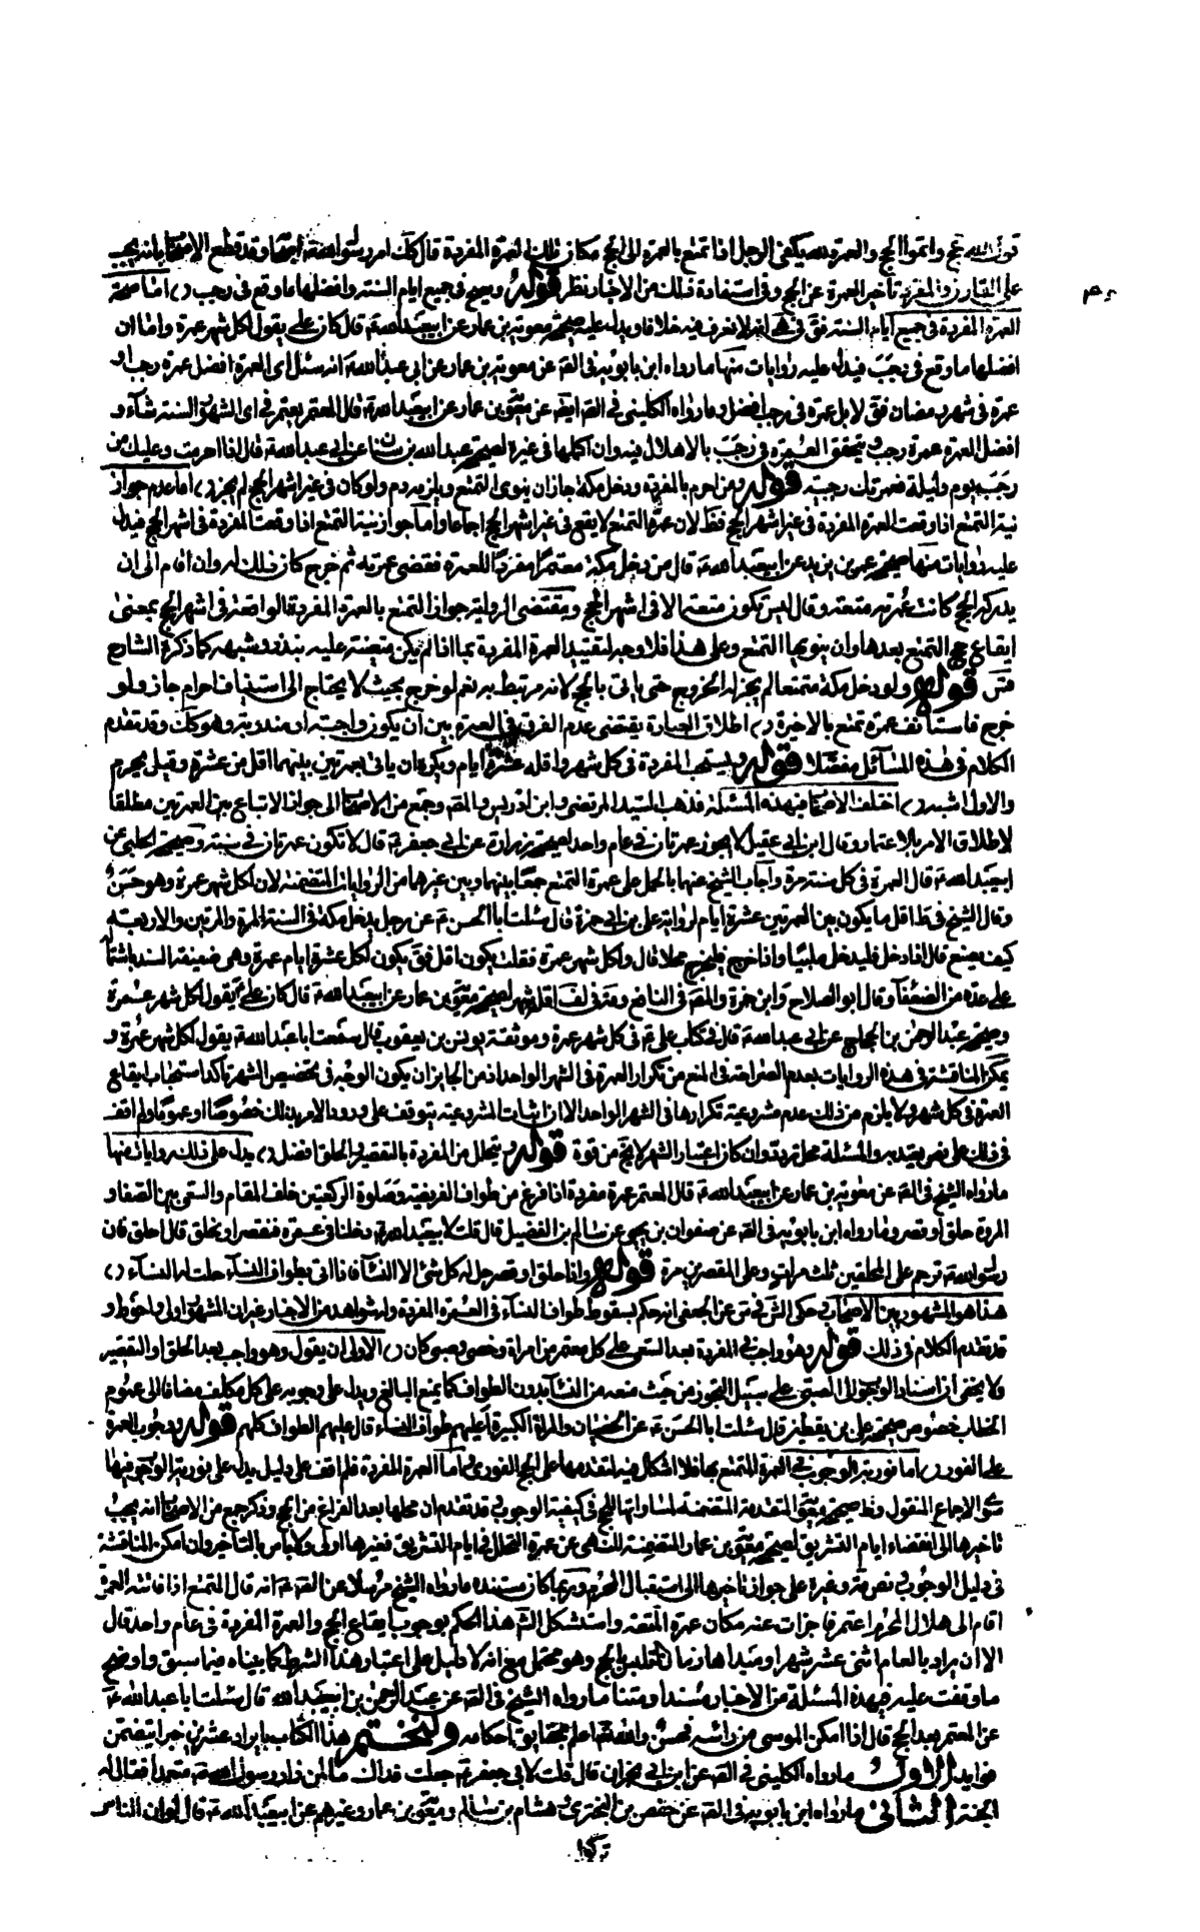 قول الله عج واتموا الحج والعمرة لله يكفى الرجل اذا تمتع بالعمرة الى الحج مكان تلك العمرة المفردة قال كذلك امر رسول الله ص اصحابه وقد قطع الاصحاب بانه يجب
على القارن والمفرد تأخير العمرة عن الحج وفى استفادة ذلك من الاخبار نظر قوله ويصح فى جميع ايام السنة وافضلها ما وقع فى رجب اما صحة
العمرة المفردة فى جميع ايام السنة لا نعرف فيه خلافا ويدل عليه صحيحة معوية بن عمار عن ابيعبدالله ع قال كان على يقول لكل شهر عمرة واما ان
افضلها ما وقع فى رجب فيدل عليه روايات منها ما رواه ابن بابويه فى عن معوية بن عمار عن ابى عبدالله ع انه سئل اى العمرة افضل عمرة رجب او
عمرة فى شهر رمضان فق لا بل عمرة فى رجب افضل وما رواه الكلينى فى عن معوية بن عمار عن ابيعبدالله ع قال المعتمر يعتمر فى اى الشهور السنة شاء و
افضل العمرة عمرة رجب ويتحقق العمرة فى رجب بالاهلال فيه وان اكملها فى غيره لصحيحة عبدالله بن سنان عن ابى عبدالله ع قال اذا احرمت وعليك من
رجب يوم وليلة فعمرتك رجبية قوله ومن احرم بالمفردة ودخل مكة جاز ان ينوى التمتع ويلزمه دم ولو كان فى غير اشهر الحج لم يجز اما عدم جواز
نية التمتع اذا وقعت العمرة المفردة فى غير اشهر الحج فقط لان عمرة التمتع لا يقع فى غير اشهر الحج اجماعا واما جواز نية التمتع اذا وقعت المفردة فى اشهر الحج فيدل
عليه روايات منها صحيحة عمر بن يزيد عن ابيعبدالله ع قال من دخل مكة معتمرا مفردا للعمرة فقضى عمرته ثم خرج كان ذلك له وان اقام الى ان
يدركه الحج كانت عمرته متعة وقال ليس يكون متعة الا فى اشهر الحج ومقتضى الرواية جواز التمتع بالعمرة المفردة الواقعة فى اشهر الحج بمعنى
ايقاع حج التمتع بعدها وان ينوى بها التمتع وعلى هذا فلا وجه لتقييد العمرة المفردة بما اذا لم يكن متعينة عليه بنذر وشبهه كما ذكره الشارح
قوله ولو دخل مكة متمتعا لم يجز له الخروج حتى ياتى بالحج لانه مرتبط به نعم لو خرج بحيث لا يحتاج الى استيناف احرام جاز ولو
خرج فاستأنف عمرة تمتع بالاخيرة اطلاق العبارة يقتضى عدم الفرق فى العمرة بين ان يكون واجبة او مندوبة وهو كذلك وقد تقدم
الكلام فى هذه المسائل مفصلا قوله ويستحب المفردة فى كل شهر واقله عشرة ايام ويكره ان ياتى بعمرتين بينهما اقل من عشرة وقيل يحرم
والاول اشبه اختلف الاصحاب فى هذه المسئلة فذهب السيد المرتضى وابن ادريس والمص وجمع من الاصحاب الى جواز الاتباع بين العمرتين مطلقا
لاطلاق الامر بالاعتمار وقال ابن ابى عقيل لا يجوز عمرتان فى عام واحد لصحيحة زرارة عن ابى جعفر ع قال لا تكون عمرتان فى سنة وصحيحة الحلبى عن
ابيعبدالله ع قال العمرة فى كل سنة مرة واجاب الشيخ عنها بالحمل على عمرة التمتع جمعا بينها وبين غيرهما من الروايات المتضمنة لان لكل شهر عمرة وهو حسن
وقال الشيخ فى ط اقل ما يكون بين العمرتين عشرة ايام لرواية على بن ابى حمزة قال سئلت ابا الحسن ع عن رجل يدخل مكة فى السنة المرة والمرتين والاربعة
كيف يصنع قال اذا دخل فليدخل ملبيا واذا خرج فليخرج محلا قال ولكل شهر عمرة فقلت يكون اقل فق يكون لكل عشرة ايام عمرة وهى ضعيفة السند باشتمالها
على عدة من الضعفاء وقال ابو الصلاح وابن حمزة والمص فى النافع اقله شهر لصحيحة معوية بن عمار عن ابيعبدالله ع قال كان على ع يقول لكل شهر عمرة
وصحيحة عبد الرحمن بن الحجاج عن ابى عبدالله ع قال فى كتاب على ع فى كل شهر عمرة وموثقة يونس بن يعقوب قال سمعت ابا عبدالله ع يقول لكل شهر عمرة و
يمكن المناقشة فى هذه الروايات بعدم الصراحة فى المنع من تكرار العمرة فى الشهر الواحد اذ من الجايز ان يكون الوجه فى تخصيص الشهر تأكد استحباب ايقاع
العمرة فى كل شهر ولا يلزم من ذلك عدم مشروعية تكرارها فى الشهر الواحد الا ان اثبات المشروعية يتوقف على ورود الامر بذلك خصوصا او عموما ولم اقف
فى ذلك على نص يعتد به والمسئلة محل تردد وان كان اعتبار الشهر لا يخ من قوة قوله ويتحلل من المفردة بالتقصير والحلق افضل يدل على ذلك روايات منها
ما رواه الشيخ فى عن معوية بن عمار عن ابيعبدالله ع قال المعتمر عمرة مفردة اذا فرغ من طواف الفريضة وصلوة الركعتين خلف المقام والسعى بين الصفا و
المروة حلق او قصر وما رواه ابن بابويه فى عن صفوان بن يحيى عن سالم بن الفضيل قال قلت لابيعبدالله ع دخلنا فى عمرة فنقصر او نحلق قال احلق فان
رسول الله ص ترحم على المحلقين ثلث مرات وعلى المقصرين مرة قوله واذا حلق او قصر حل له كل شئ الا النساء فاذا اتى بطواف النساء حلت له النساء
هذا هو المشهور بين الاصحاب حكى عن الجعفى انه حكم بسقوط طواف النساء فى العمرة المفردة وله شواهد من الاخبار غير ان المشهور اولى واحوط و
قد تقدم الكلام فى ذلك قوله وهو واجب فى المفردة بعد السعى على كل معتمر من امراة وخصى وصبى كان الاولى ان يقول وهو واجب بعد الحلق او التقصير
ولا يخفى ان اسناد الوجوب الى الصبى على سبيل التجوز من حيث منعه من النساء بدون الطواف كما يمنع البالغ ويدل على وجوبه على كل مكلف مضافا الى عموم
الخطاب خصوص صحيحة على بن يقطين قال سئلت ابا الحسن ع عن الخصيان والمراة الكبيرة أعليهم طواف النساء قال عليهم الطواف كلهم قوله ووجوب العمرة
على الفور اما فورية الوجوب فى العمرة المتمتع بها فلا اشكال فيه لتقدمها على الحج الفورى واما العمرة المفردة فلم اقف على دليل يدل على فورية الوجوب فيها
سوى الاجماع المنقول وصحيحة معوية المتقدمة المتضمنة لمساواتها للحج فى كيفية الوجوب وقد تقدم ان محلها بعد الفراغ من الحج وذكر جمع من الاصحاب انه يجب
تاخيرها الى انقضاء ايام التشريق لصحيحة معوية بن عمار المتضمنة للنهى عن عمرة التحلل فى ايام التشريق فغيرها اولى ولا باس بالتأخير وان امكن المناقشة
فى دليل الوجوب ونص وغيره على جواز تاخيرها الى استقبال المحرم وربما كان مستنده ما رواه الشيخ مرسلا عن الص ع انه قال المتمتع اذا فاتته العمرة
اقام الى هلال المحرم اعتمر فاجزات عنه مكان عمرة المتعة واستشكل هذا الحكم بوجوب ايقاع الحج والعمرة المفردة فى عام واحد قال
الا ان يراد بالعام اثنى عشر شهرا ومبداها زمان التلبس بالحج وهو محتمل مع انه لا دليل على اعتبار هذا الشرط كما بيناه فيما سبق واوضح
ما وقفت عليه فى هذه المسئلة من الاخبار سندا ومتنا ما رواه الشيخ فى عن عبد الرحمن بن ابيعبدالله قال سئلت ابا عبدالله ع
عن المعتمر بعد الحج قال اذا امكن الموسى من رأسه فحسن والله تع اعلم بحقايق احكامه ولنختم هذا الكتاب بايراد عشرين خبرا يتضمن
فوايد الاول ما رواه الكلينى فى عن ابن ابى نجران قال قلت لابى جعفر ع جعلت فداك ما لمن زار رسول الله ص متعمدا فقال له
الجنة الثانى ما رواه ابن بابويه فى عن حفص بن البخترى وهشام بن سالم ومعوية بن عمار وغيرهم عن ابيعبدالله ع قال لو ان الناس
تركوا